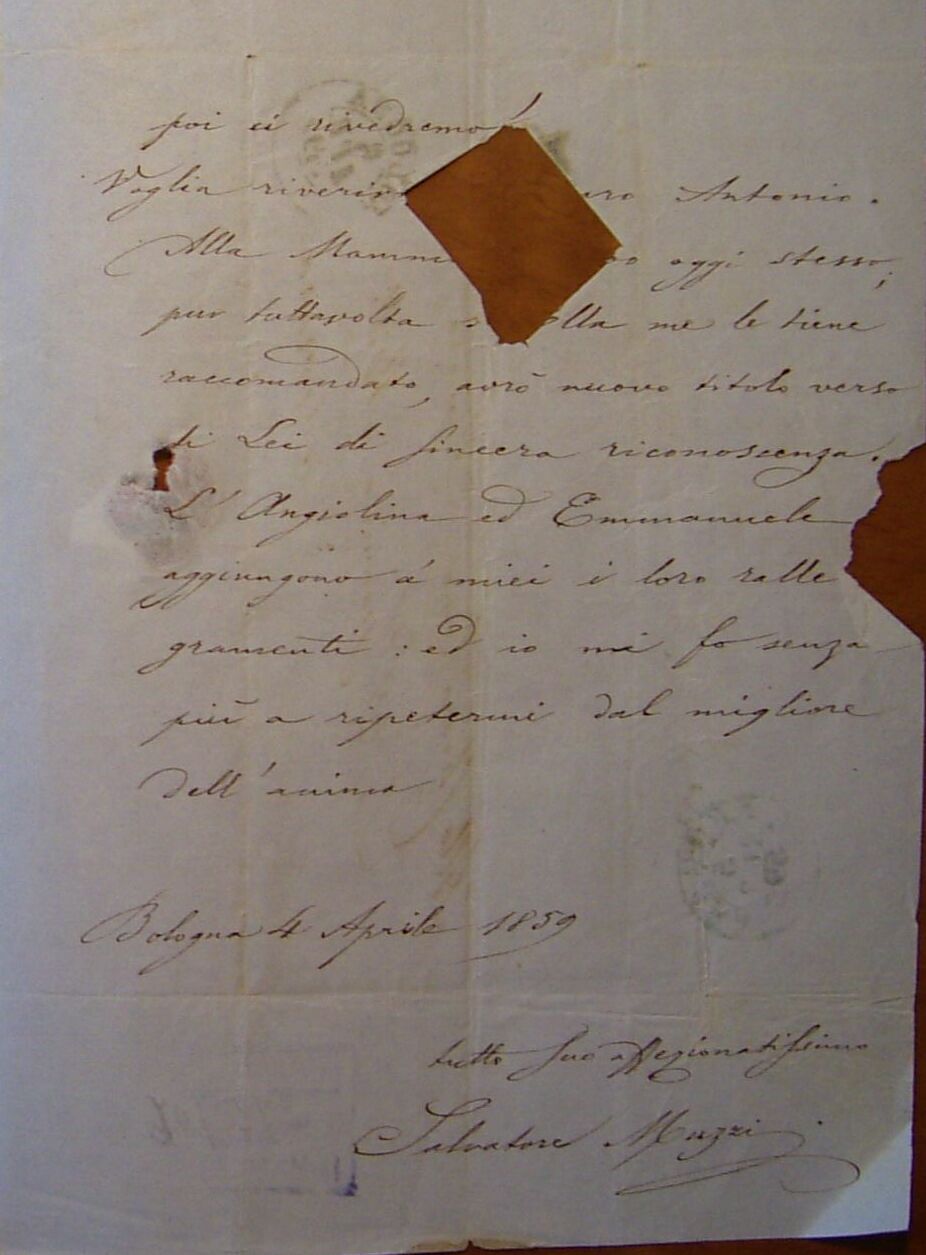 poi ci rivedremo!
Voglia riverir aro Antonio.
Alla Mamm o oggi stesso;
pur tuttavolta s ella me le tiene
raccomandato, avrò nuovo titolo verso
di Lei di sincera riconoscenza.
L'Angiolina ed Emmanuele
aggiungono a' miei i loro ralle
gramenti: ed io mi fo senza
più a ripetermi dal migliore
dell'anima
Bologna 4 Aprile 1859
tutto suo affezionatissimo
Salvatore Muzzi